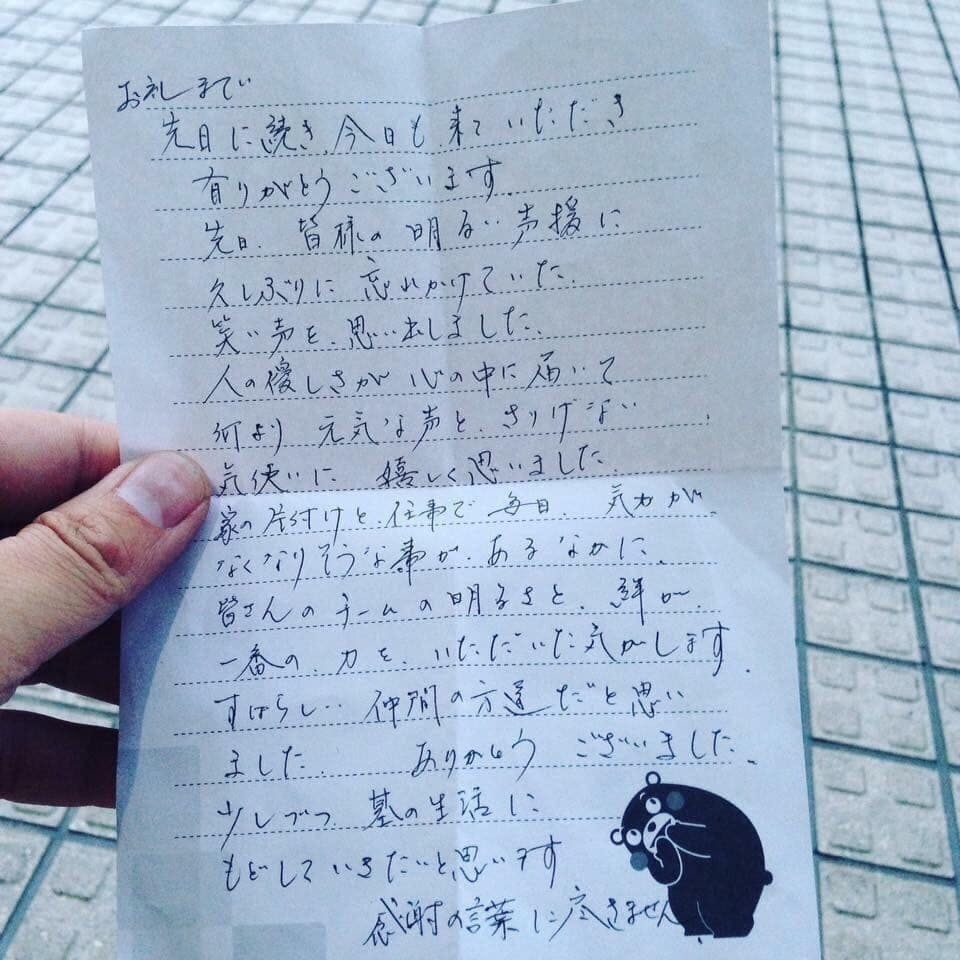 お礼まで
先日に続き、今日も来ていただき
有りがとうございます
先日、皆様の明るい声援に
久しぶりに忘れかけていた
笑い声を、思い出しました
人の優しさが心の中に届いて
何より元気な声と、さりげない
気使いに嬉しく思いました
家の片付けと仕事で毎日、気力が
なくなりそうな事が、あるなかに、
皆さんのチームの明るさと、絆が、
一番の、力を、いただいた気がします
すばらしい仲間の方達だと思い
ました ありがとうございました
少しづつ 基の生活に
もどしていきたいと思います
感謝の言葉に尽きません